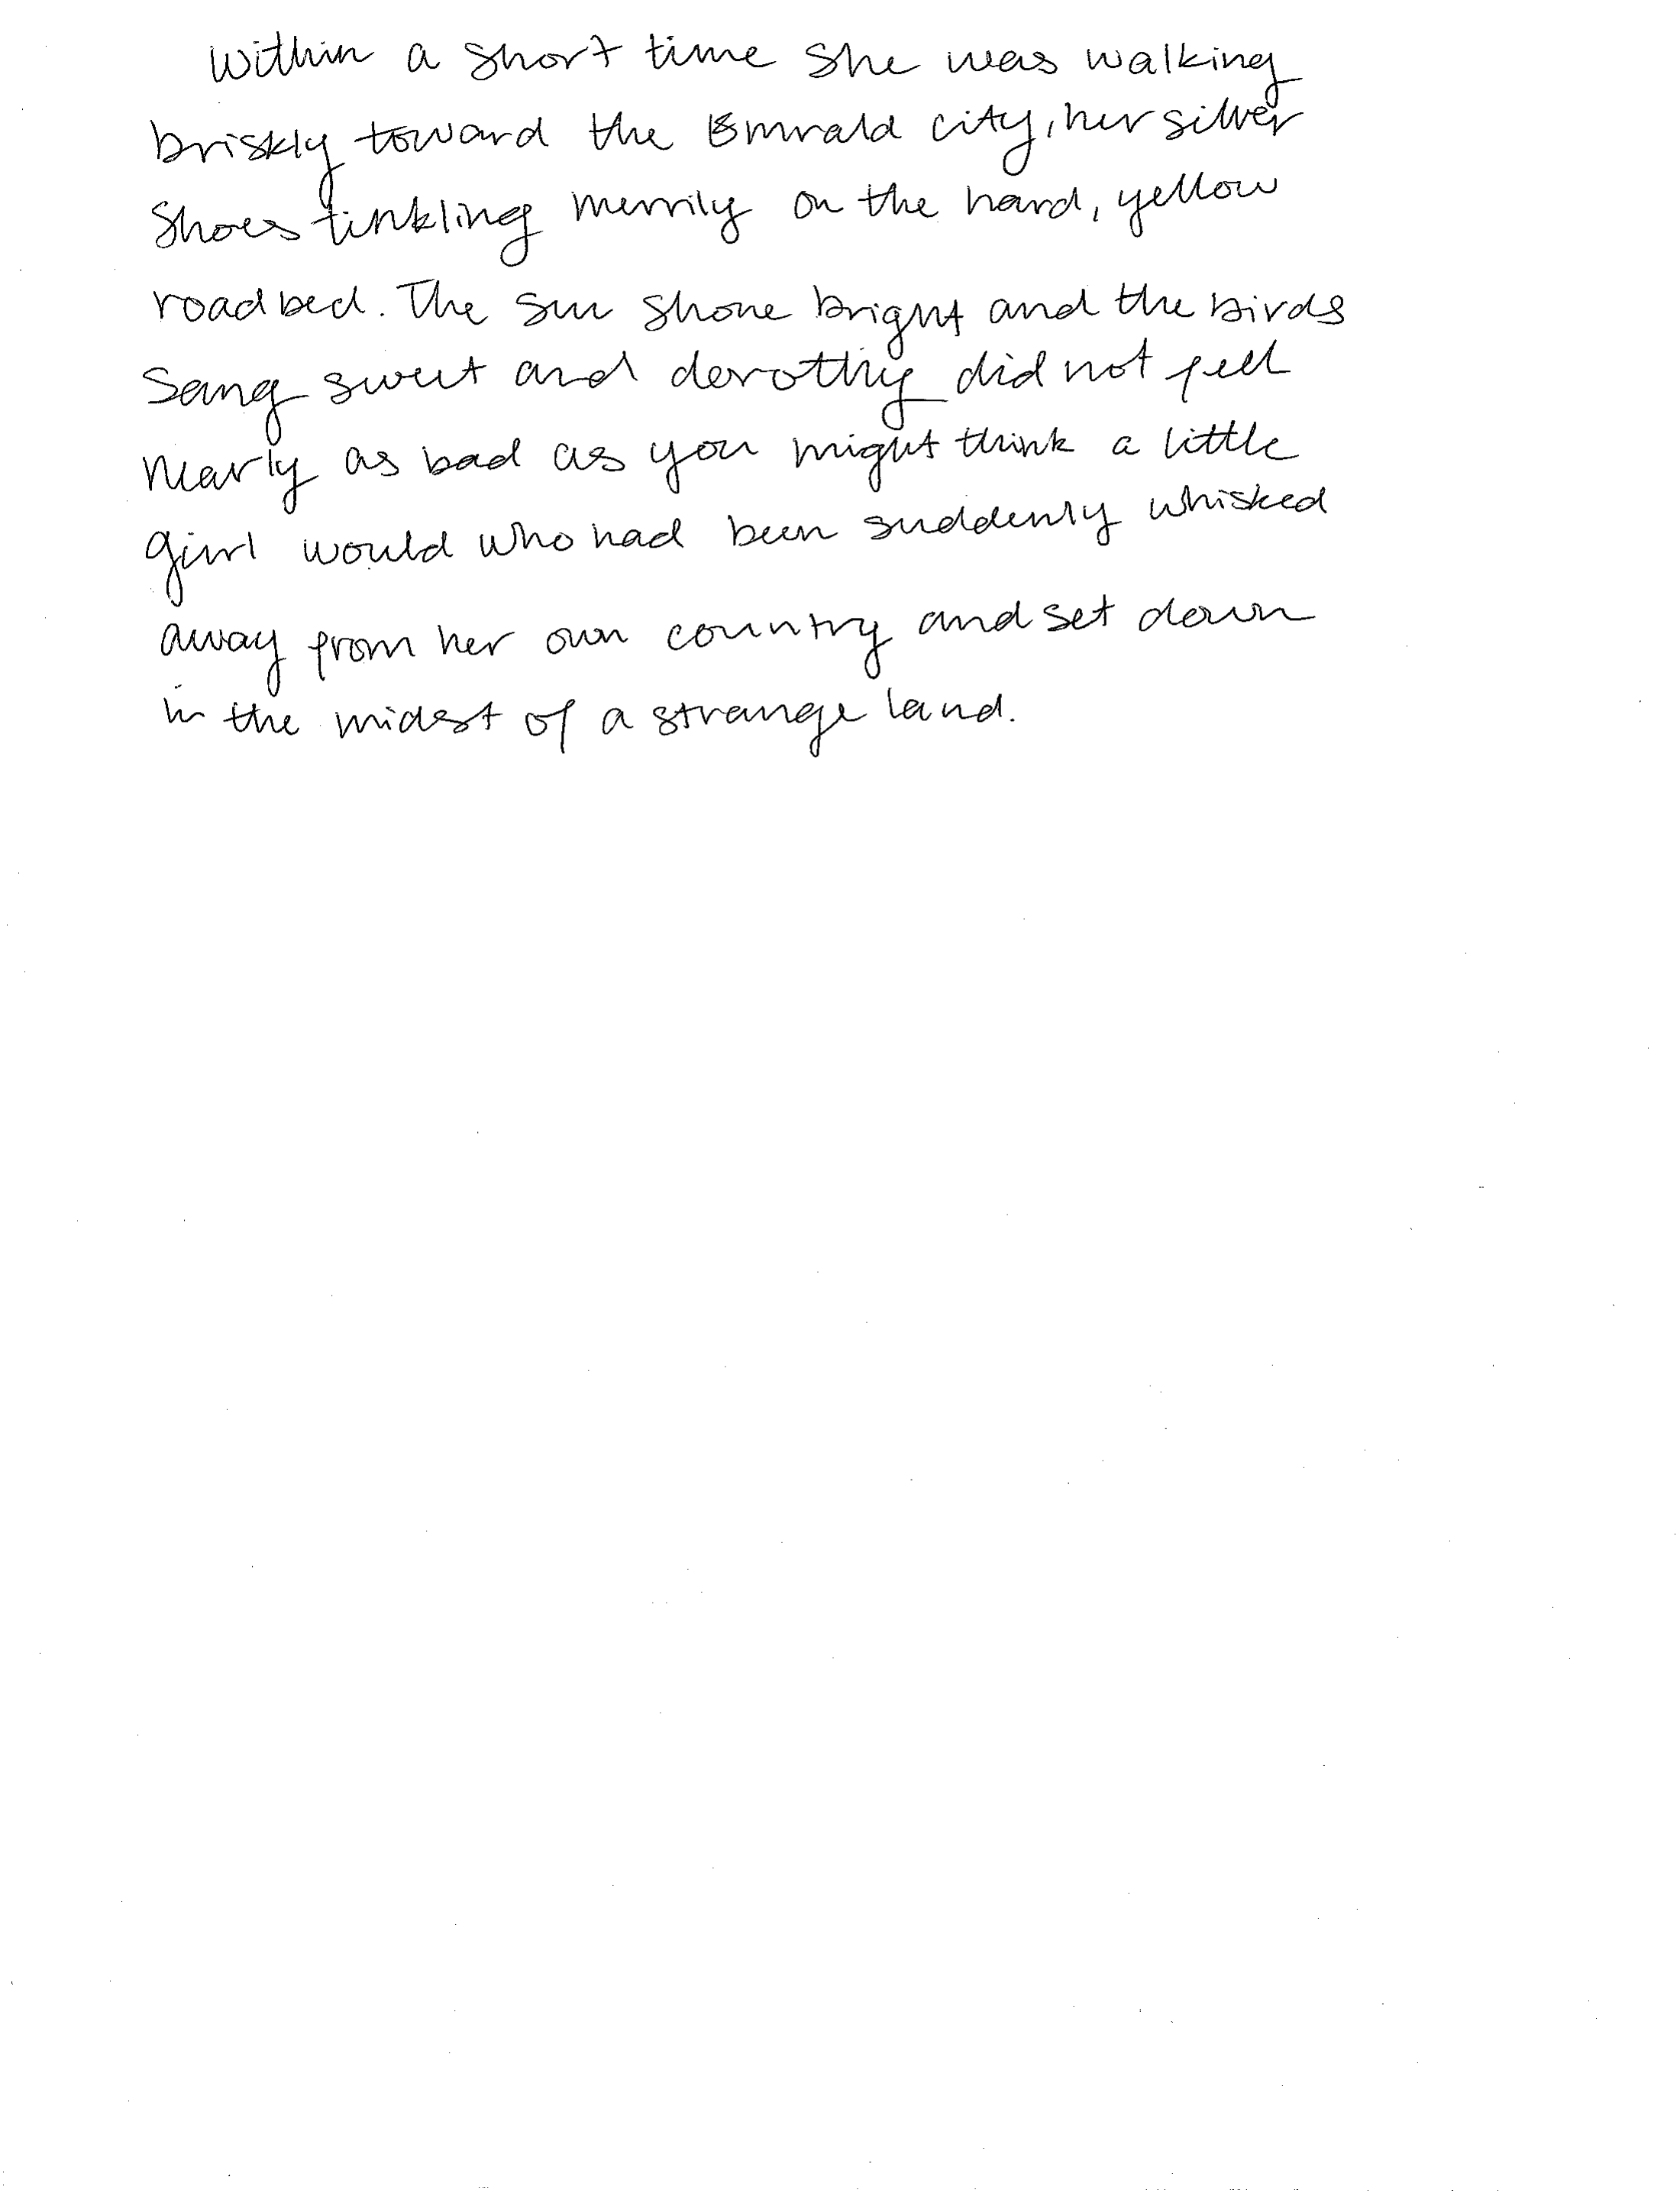 Within a short time she was walking
briskly toward the Emrald city, her silver
Shoes tinkling merrily on the hard, yellow
roadbed. The sun shone bright and the birds
Sang sweet and dorothy did not feel
Nearly as bad as you might think a little
girl would who had been suddenly whisked
away from her own country and set down
in the midst of a strange land.